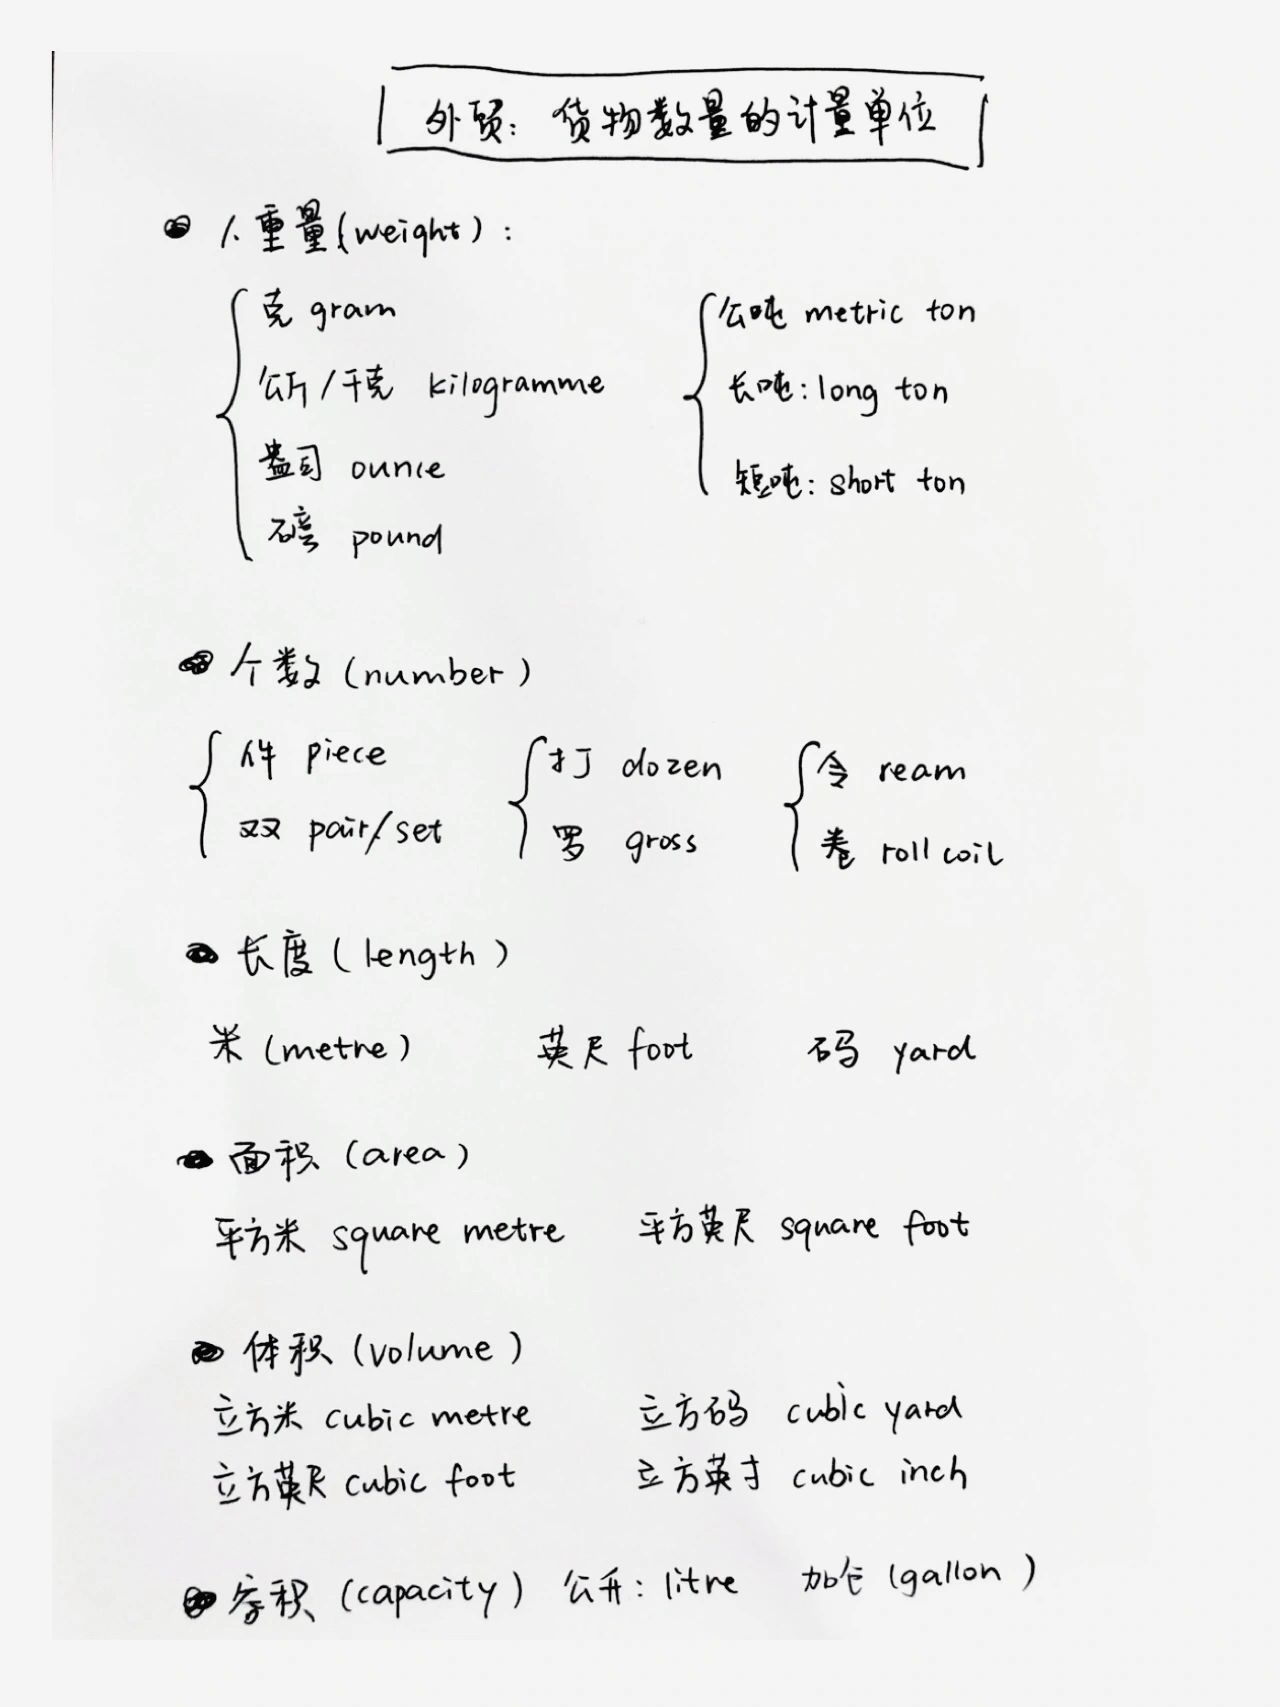 外贸：货物数量的计量单位
1.重量(weight)：
克 gram
公吨 metric ton
公斤/千克 kilogramme
长吨：long ton
盎司 ounce
短吨：short ton
磅 pound
个数 (number)
件 piece 打 dozen 令 ream
双 pair/set 罗 gross 卷 roll coil
长度 (length)
米 (metre) 英尺 foot 码 yard
面积 (area)
平方米 square metre 平方英尺 square foot
体积 (volume)
立方米 cubic metre 立方码 cubic yard
立方英尺 cubic foot 立方英寸 cubic inch
容积 (capacity) 公升：litre 加仑 (gallon)